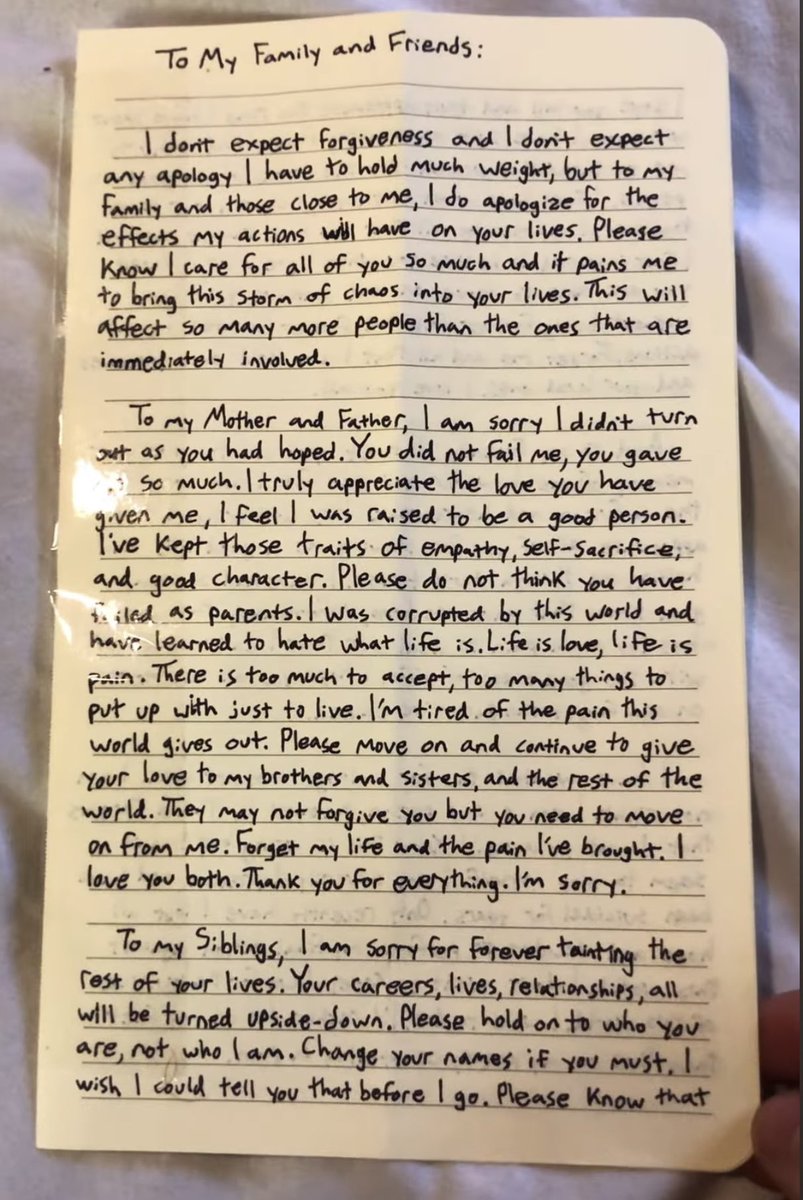 To My Family and Friends:
I don't expect forgiveness and I don't expect
any apology I have to hold much weight, but to my
family and those close to me, I do apologize for the
effects my actions will have on your lives. Please
Know I care for all of you so much and it pains me
to bring this storm of chaos into your lives. This will
affect so many more people than the ones that are
immediately involved.
To my Mother and Father, I am sorry I didn't turn
out as you had hoped. You did not fail me, you gave
so much. I truly appreciate the love you have
given me, I feel I was raised to be a good person.
I've kept those traits of empathy, self-sacrifice,
and good character. Please do not think you have
failed as parents. I was corrupted by this world and
have learned to hate what life is. Life is love, life is
pain. There is too much to accept, too many things to
put up with just to live. I'm tired of the pain this
world gives out. Please move on and continue to give
your love to my brothers and sisters, and the rest of the
world. They may not forgive you but you need to move
on from me. Forget my life and the pain I've brought. I
love you both. Thank you for everything. I'm sorry.
To my Siblings, I am sorry for forever tainting the
rest of your lives. Your careers, lives, relationships, all
will be turned upside-down. Please hold on to who you
are, not who I am. Change your names if you must. I
wish I could tell you that before I go. Please Know that